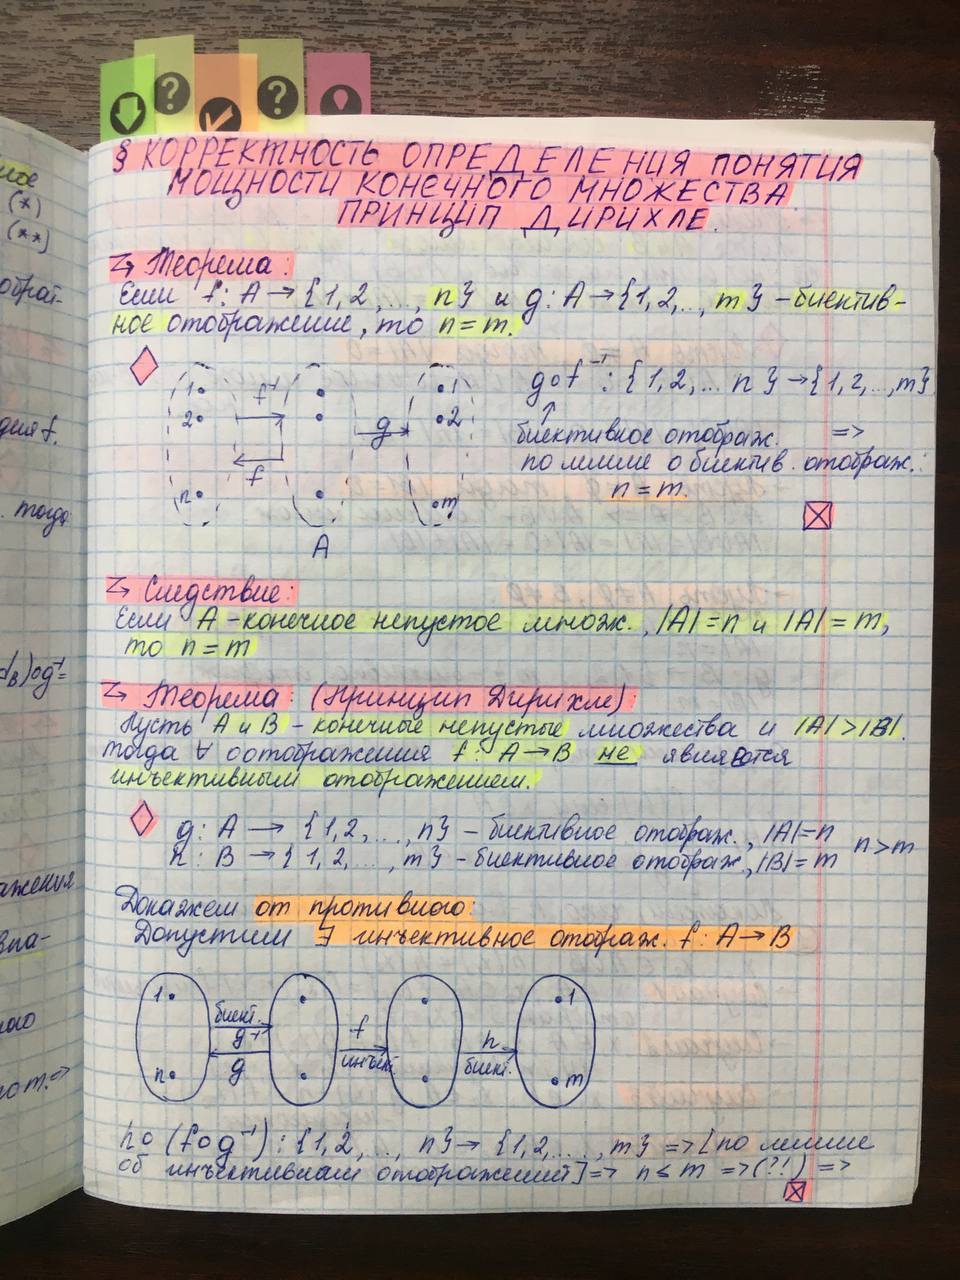 § КОРРЕКТНОСТЬ ОПРЕДЕЛЕНИЯ ПОНЯТИЯ
МОЩНОСТИ КОНЕЧНОГО МНОЖЕСТВА
ПРИНЦИП ДИРИХЛЕ.
Теорема:
Если f: A → {1, 2, ..., n} и g: A → {1, 2, .., m} – биектив-
ное отображение, то n = m.
1 f⁻¹ 1
2 g 2
f
n m
A
g∘f⁻¹: {1, 2, ... n} → {1, 2, ..., m}
↑
биективное отображ. =>
по лемме о биектив. отображ.:
n = m.
Следствие:
Если A – конечное непустое множ., |A| = n и |A| = m,
то n = m
Теорема: (Принцип Дирихле):
Пусть A и B – конечные непустые множества и |A| > |B|.
тогда ∀ оотображения f: A → B не являются
инъективным отображением.
g: A → {1, 2, ..., n} – биективное отображ., |A| = n
h: B → {1, 2, ..., m} – биективное отображ., |B| = m
n > m
Докажем от противного:
Допустим ∃ инъективное отображ. f: A → B
1 биект. g⁻¹ f h 1
n g инъект. биект. m
h∘(f∘g⁻¹): {1, 2, ..., n} → {1, 2, ..., m} => [по лемме
об инъективном отображений] => n ≤ m => (?!) =>
(*)
(**)
обрат-
тогда
g⁻¹=
ажения